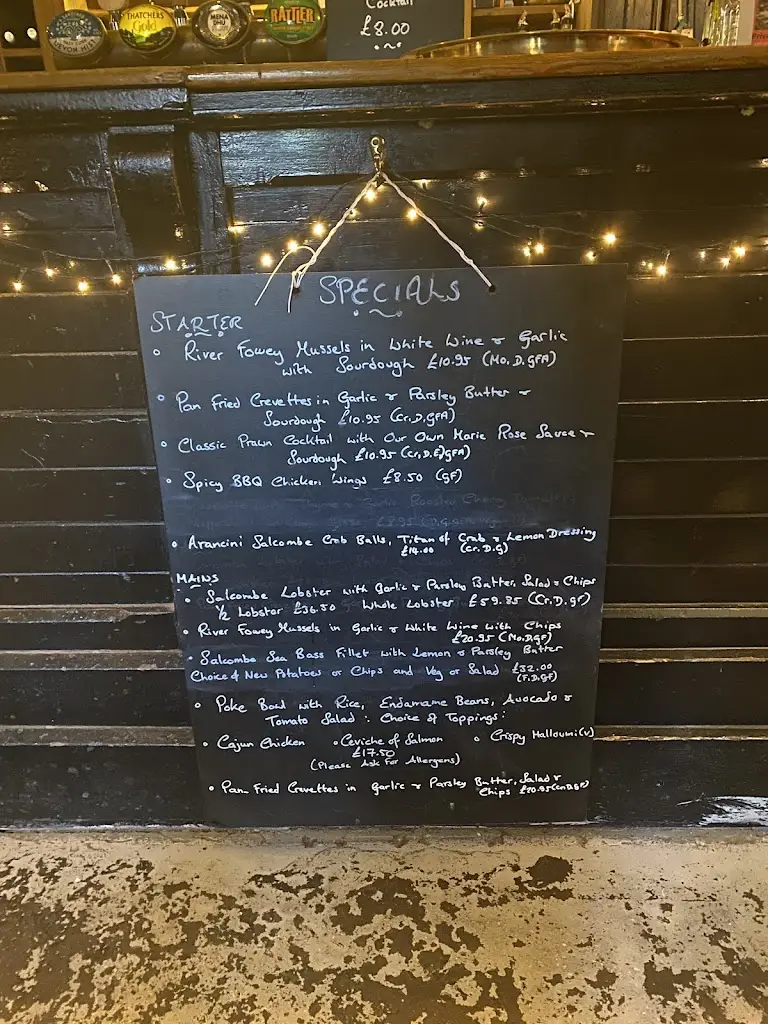 DEVON MIST
THATCHERS
Gold
MENA
DHU
RATTLER
Cocktail
£8.00
SPECIALS
STARTER
• River Fowey Mussels in White Wine & Garlic
with Sourdough £10.95 (Mo.D.GFA)
• Pan Fried Crevettes in Garlic & Parsley Butter &
Sourdough £10.95 (Cr.D.GFA)
• Classic Prawn Cocktail with Our Own Marie Rose Sauce &
Sourdough £10.95 (Cr,D.E)GFA)
• Spicy BBQ Chicken Wings £8.50 (GF)
• Arancini Salcombe Crab Balls, Titan of Crab & Lemon Dressing
£14.00 (Cr.D.G)
MAINS
• Salcombe Lobster with Garlic & Parsley Butter, Salad & Chips
½ Lobster £36.50 Whole Lobster £59.85 (Cr.D.GF)
• River Fowey Mussels in Garlic & White Wine with Chips
£20.95 (Mo.D.GF)
• Salcombe Sea Bass Fillet with Lemon & Parsley Butter
Choice of New Potatoes or Chips and Veg or Salad £32.00
(F.D.GF)
• Poke Bowl with Rice, Endamame Beans, Avocado &
Tomato Salad : Choice of Toppings:
• Cajun Chicken • Ceviche of Salmon • Crispy Halloumi (V)
£17.50
(Please Ask For Allergens)
• Pan Fried Crevettes in Garlic & Parsley Butter, Salad &
Chips £20.95